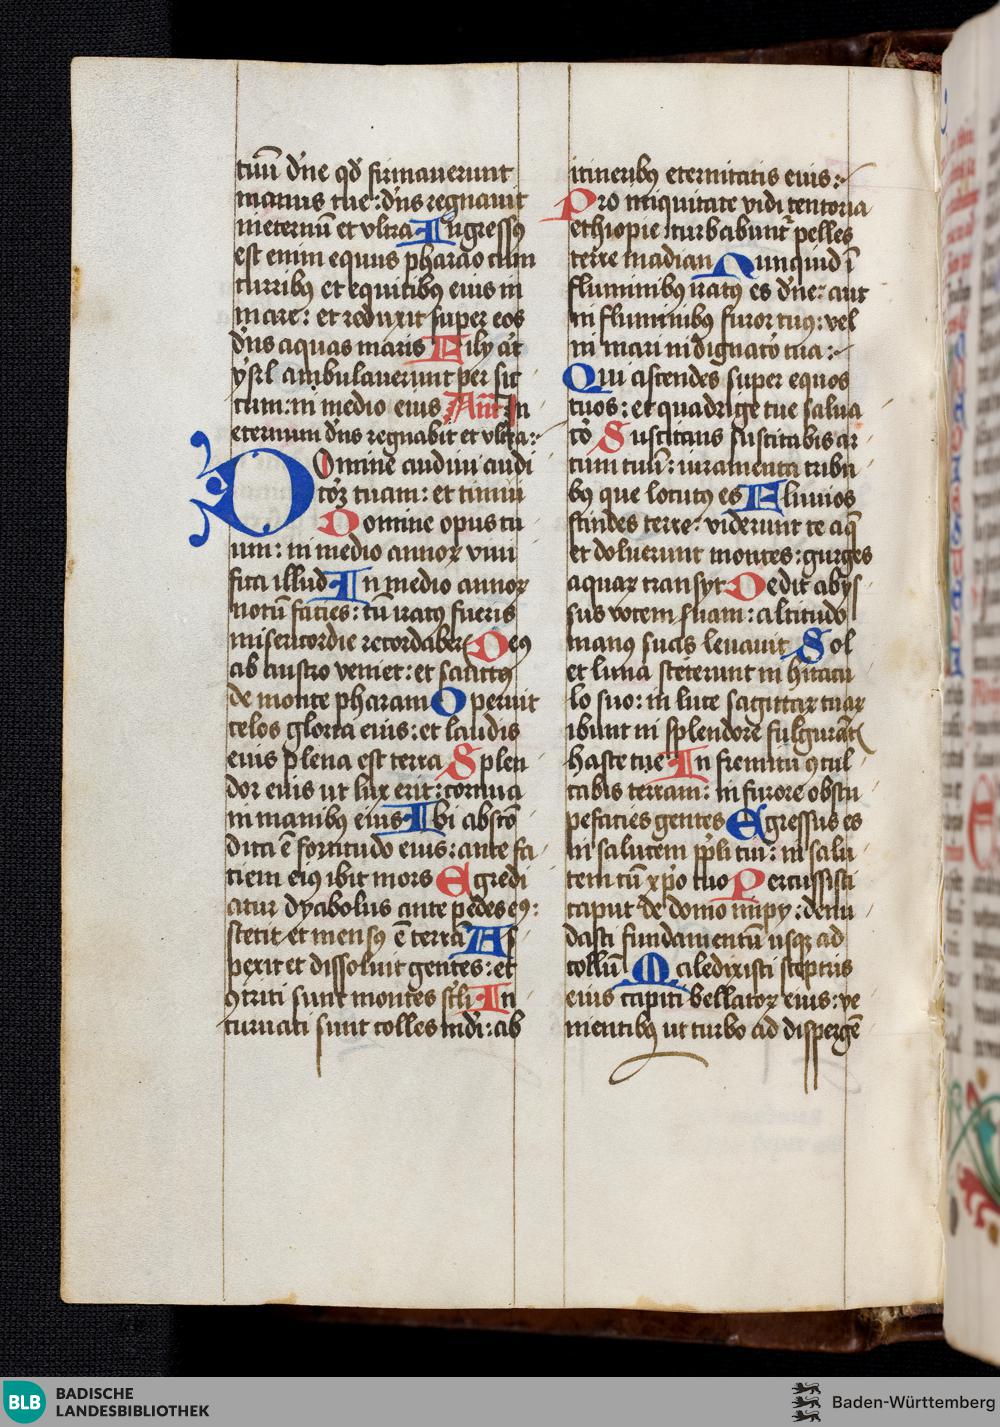 tuū dn̄e qd̄ firmauerunt
manus tue: dn̄s regnauit
ineternū et vltra Ingressꝰ
est enim equus pharao cum
curribꝫ et equitibꝫ eius in
mare: et reduxit super eos
dn̄s aquas maris Filij aūt
ysrl̄ ambulauerunt per sic
cum: in medio eius Añ In
eternum dn̄s regnabit et vltra:
Domine audiui audi
coꝫ tuam: et timui
Domine opus tu
um: in medio annoꝝ viui
fica illud In medio annoꝝ
notū facies: cū iratꝰ fueris
misericordie recordaber̄ Deꝰ
ab austro veniet: et sanctꝰ
de monte pharam Operuit
celos gloria eius: et laudis
eius plena est terra Splen
dor eius ut lux erit: cornua
in manibꝫ eius Ibi abscō
dita ē fortitudo eius: ante fa
ciem eiꝰ ibit mors Egredi
atur dyabolus ante pedes eꝰ:
stetit et mensꝰ ē terrā As
pexit et dissoluit gentes: et
ꝯtriti sunt montes sc̄li In
curuati sunt colles mdi: ab
itineribꝫ eternitatis eius:
Pro iniquitate vidi tentoria
ethiopie: turbabunt᷑ pelles
terre madian Nunquid ī
fluminibꝫ iratꝰ es dn̄e: aut
in fluminibꝫ furor tuꝰ: vel
in mari indignatō tua:
Qui ascendes super equos
tuos: et quadrige tue salua
cō Suscitans suscitabis ar
cum tuū: iuramenta tribu
bꝫ que locutꝰ es Fluuios
scindes terre: viderunt te aq̄
et doluerunt montes: gurges
aquaꝝ transyt Dedit abys
sus vocem suam: altitudo
manꝰ suas leuauit Sol
et luna steterunt in hītacu
lo suo: in luce sagittaꝝ tuaꝝ
ibunt in splendore fulgurātꝭ
haste tue In fremitu ꝯcul
cabis terram: in furore obstu
pefacies gentes Egressus es
in salutem ppl̄i tui: in salu
tem cū xp̄o tuo Percussisti
caput de domo impy: denu
dasti fundamentū usqꝫ ad
collū Maledixisti sceptris
eius capiti bellatoꝝ eius: ve
nientibꝫ ut turbo ad dispergē
BLB
BADISCHE
LANDESBIBLIOTHEK
Baden-Württemberg